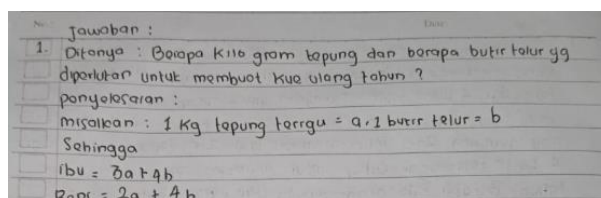 No.: Date:
Jawaban :
1. Ditanya : Berapa kilo gram tepung dan berapa butir telur yg
diperlukan untuk membuat kue ulang tahun ?
penyelesaian :
misalkan : 1 kg tepung terigu = a, 1 butir telur = b
Sehingga
Ibu = 3a + 4b
= 2a + 4b